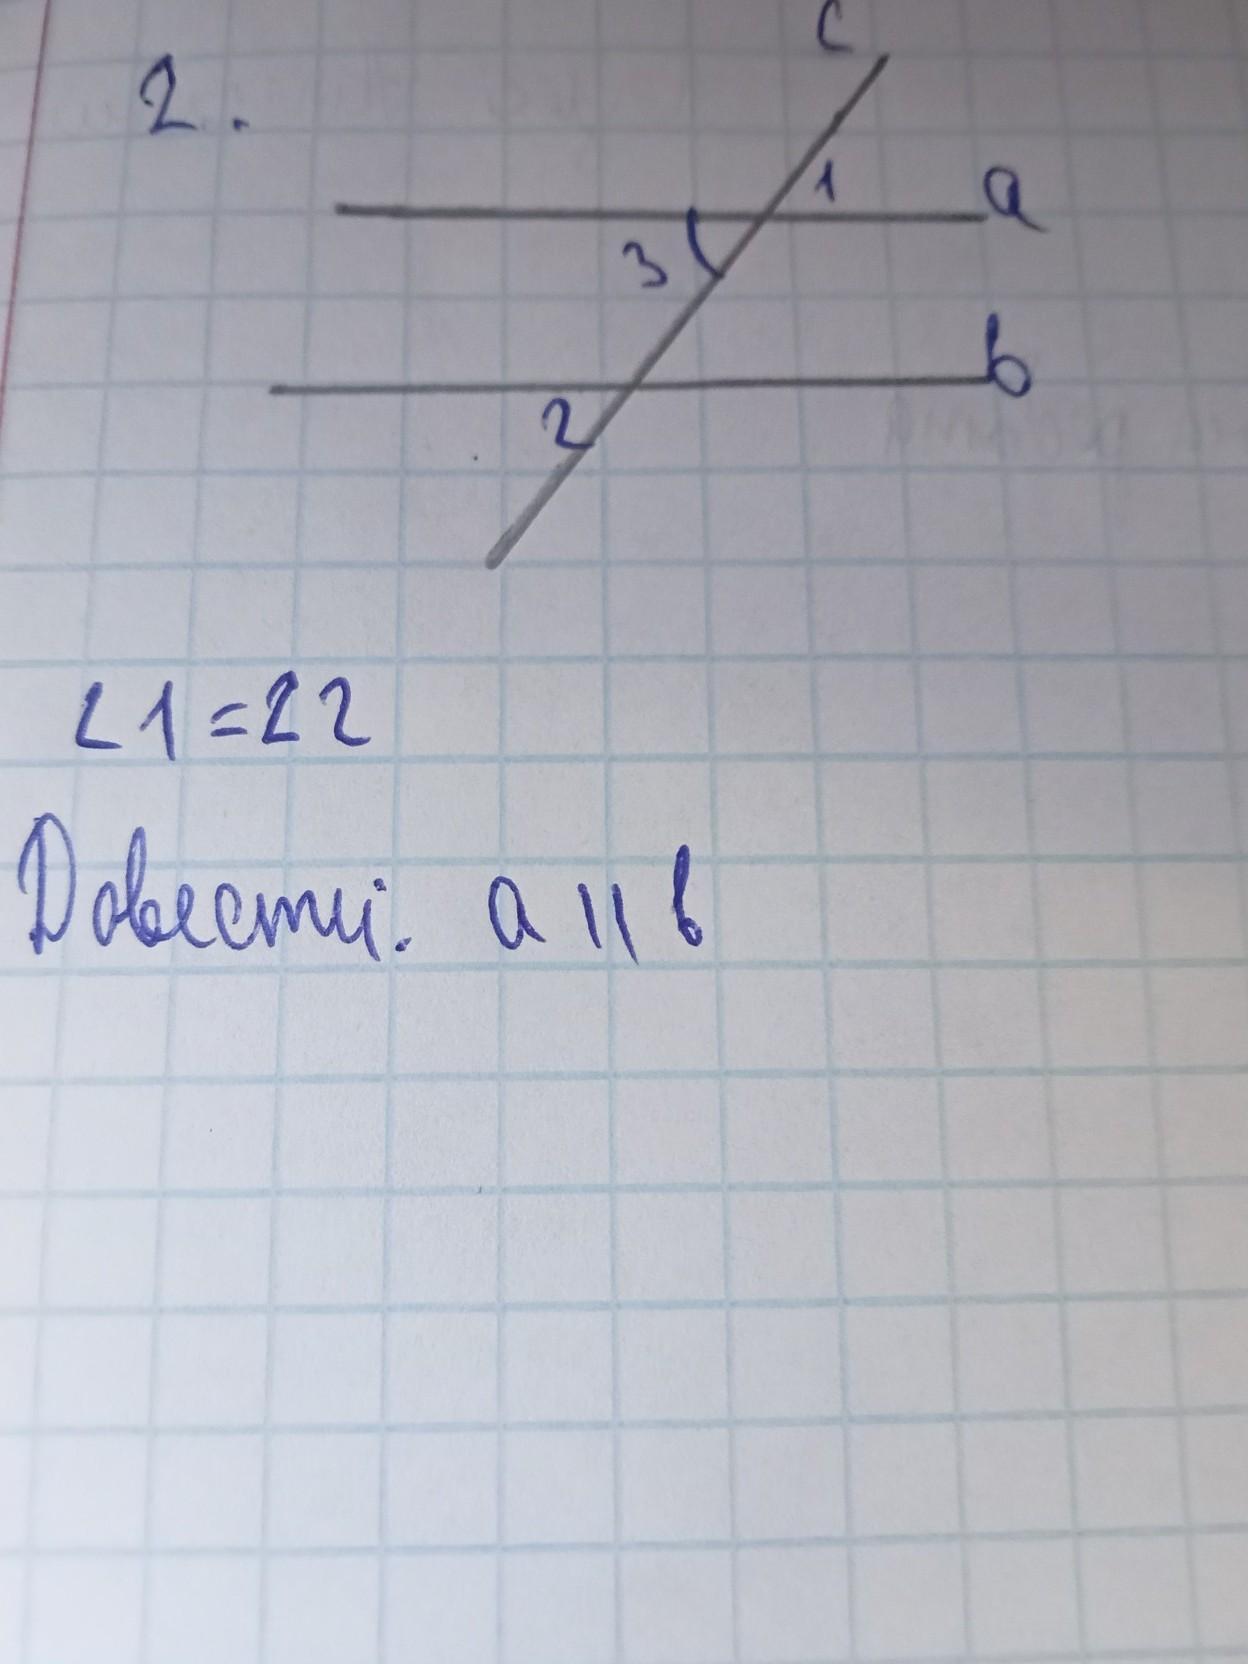 2.
c
1
a
3
b
2
∠1=∠2
Довести: a || b